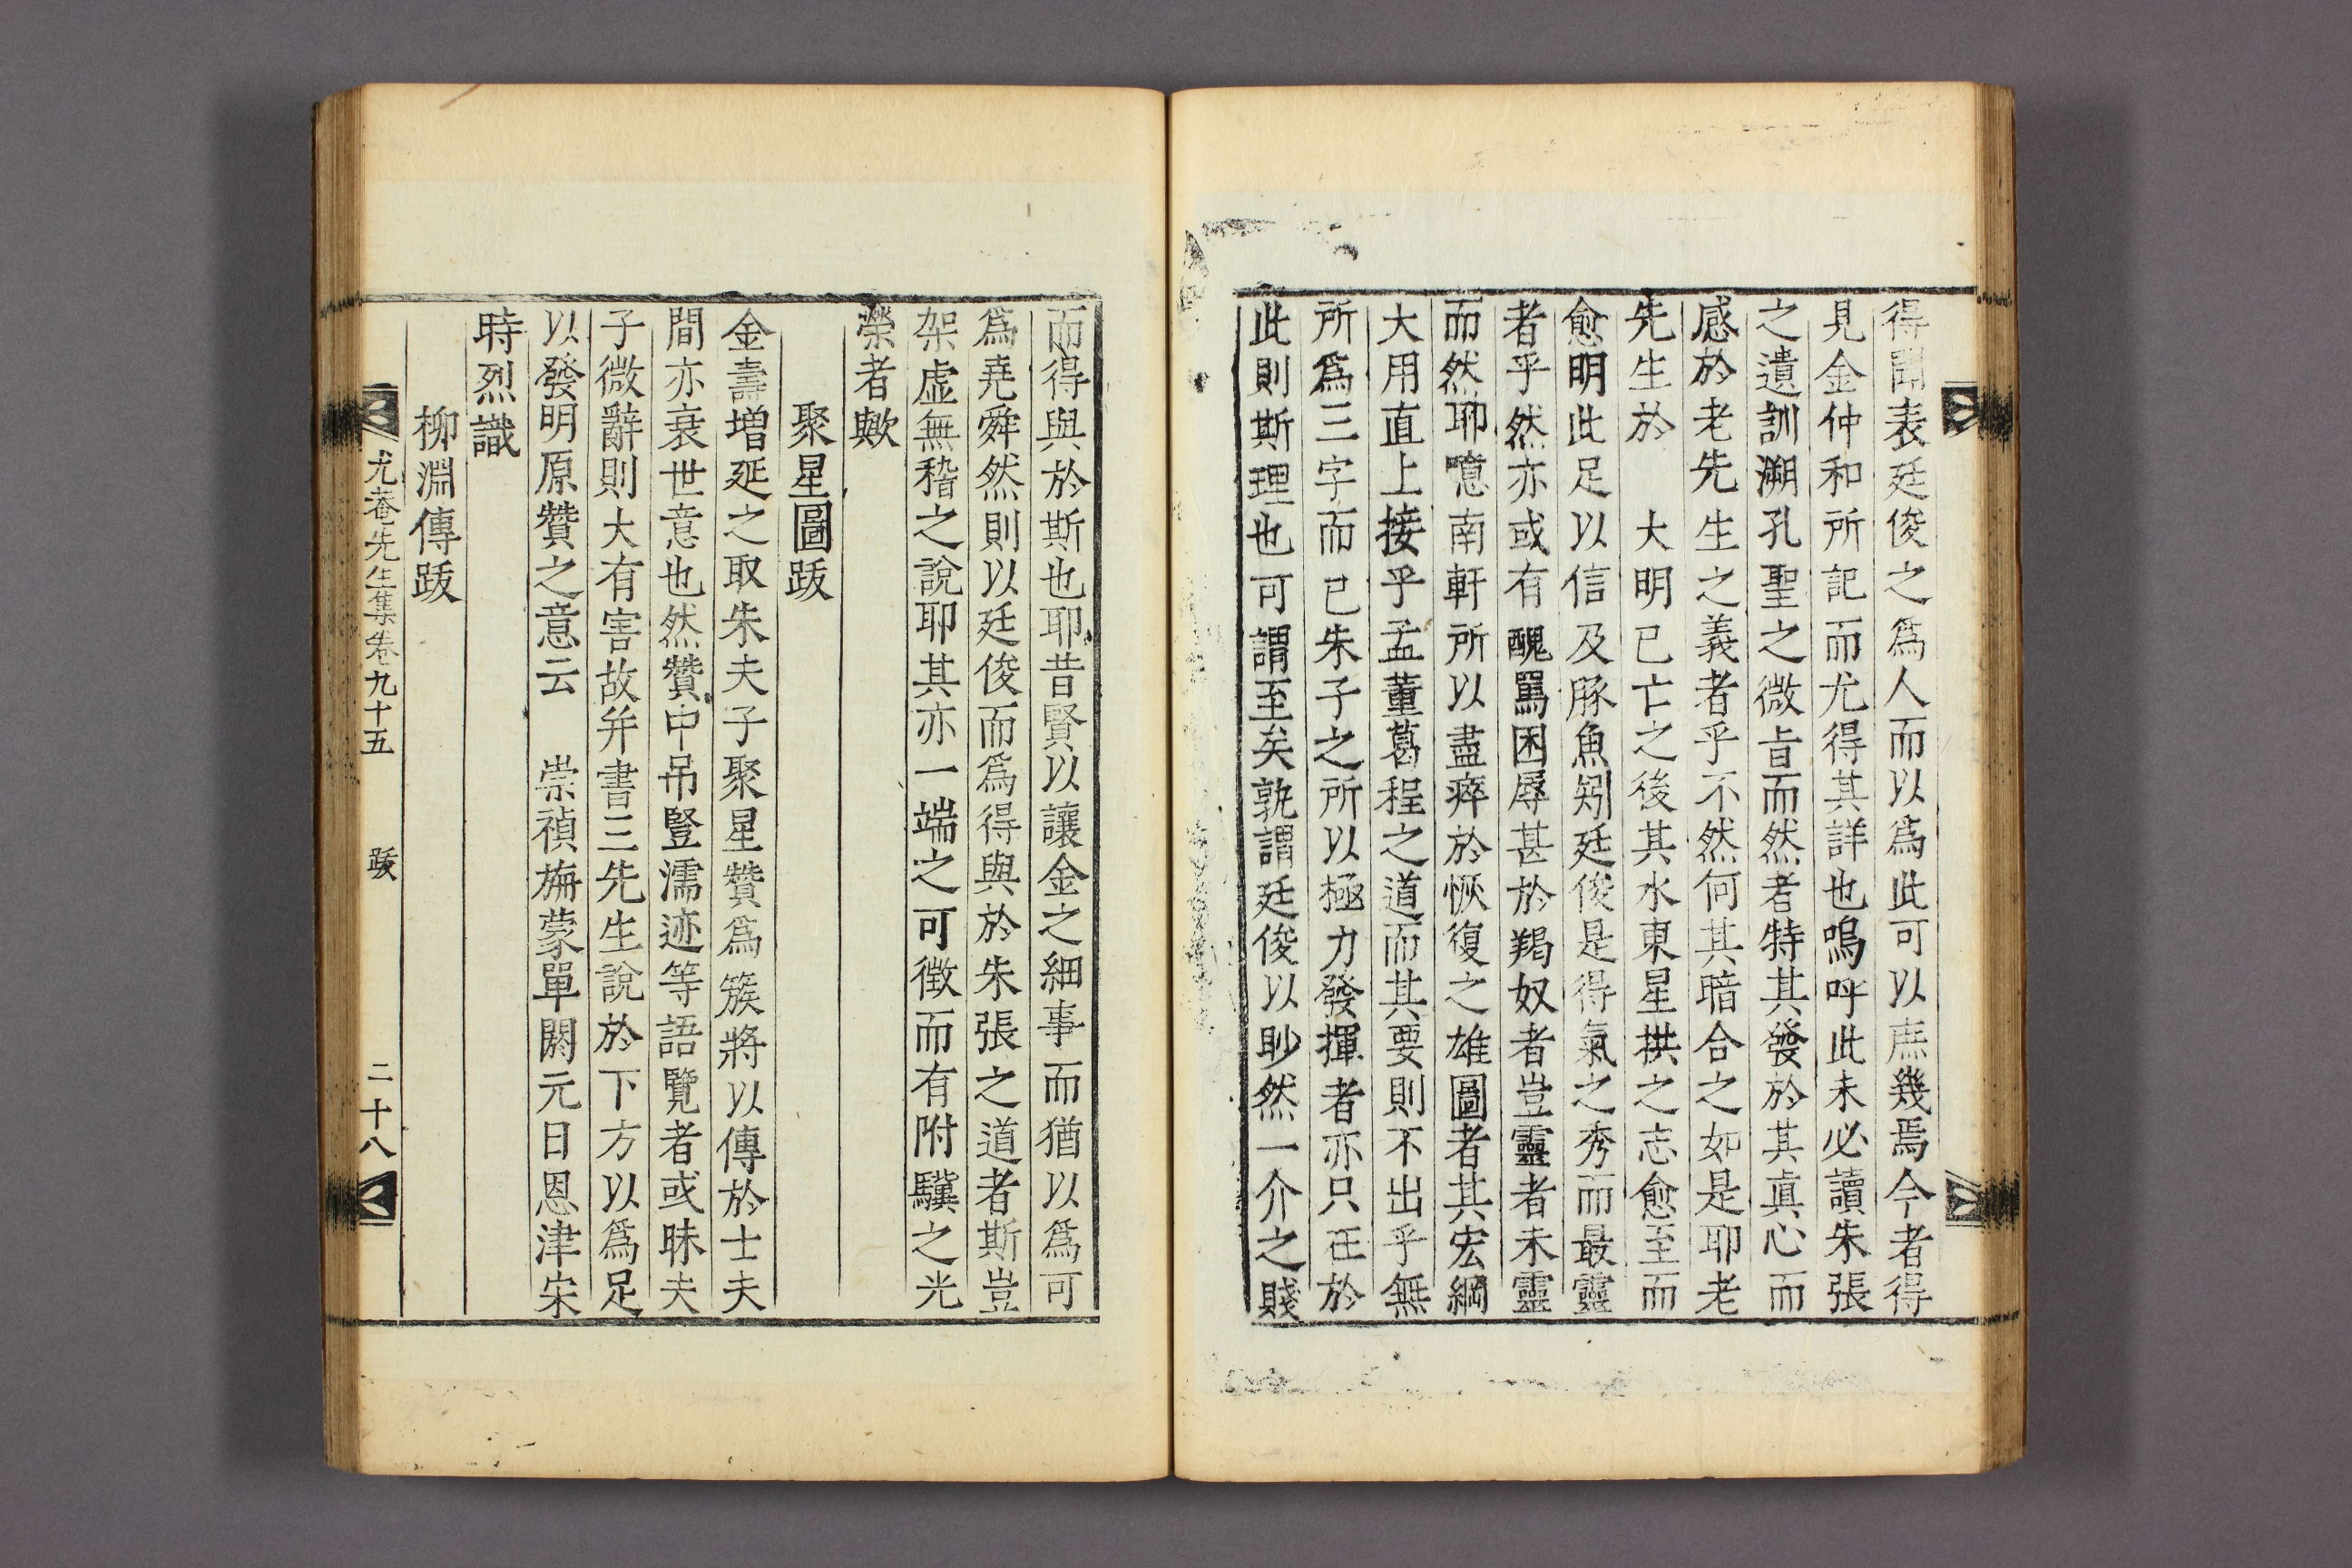 得聞表廷俊之爲人而以爲此可以庶幾焉今者得
見金仲和所記而尤得其詳也嗚呼此未必讀朱張
之遺訓溯孔聖之微旨而然者特其發於其眞心而
感於老先生之義者乎不然何其暗合之如是耶老
先生於 大明已亡之後其水東星拱之志愈至而
愈明此足以信及豚魚矧廷俊是得氣之秀而最靈
者乎然亦或有醜罵困辱甚於羯奴者豈靈者未靈
而然耶噫南軒所以盡瘁於恢復之雄圖者其宏綱
大用直上接乎孟董葛程之道而其要則不出乎無
所爲三字而已朱子之所以極力發揮者亦只在於
此則斯理也可謂至矣孰謂廷俊以眇然一介之賤
而得與於斯也耶昔賢以讓金之細事而猶以爲可
爲堯舜然則以廷俊而爲得與於朱張之道者斯豈
架虛無稽之說耶其亦一端之可徵而有附驥之光
榮者歟
聚星圖跋
金壽增延之取朱夫子聚星贊爲簇將以傳於士夫
間亦衰世意也然贊中吊豎濡迹等語覽者或昧夫
子微辭則大有害故幷書三先生說於下方以爲足
以發明原贊之意云 崇禎旃蒙單閼元日恩津宋
時烈識
柳淵傳跋
尤菴先生集卷九十五 跋 二十八